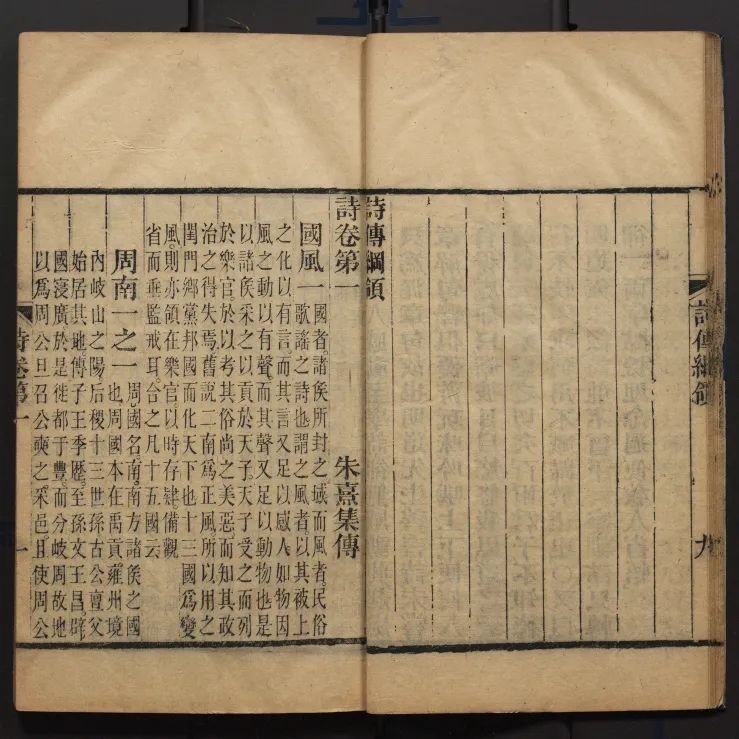 詩傳綱領
九
詩傳綱領
詩卷第一
朱熹集傳
國風一
國者諸侯所封之域而風者民俗
歌謠之詩也謂之風者以其被上
之化以有言而其言又足以感人如物因
風之動以有聲而其聲又足以動物也是
以諸侯采之以貢於天子天子受之而列
於樂官於以考其俗尚之美惡而知其政
治之得失焉舊說二南爲正風所以用之
閨門鄉黨邦國而化天下也十三國爲變
風則亦領在樂官以時存肄備觀
省而垂監戒耳合之凡十五國云
周南一之一
周國名南南方諸侯之國
也周國本在禹貢雍州境
內岐山之陽后稷十三世孫古公亶父
始居其地傳子王季歷至孫文王昌辟
國寖廣於是徙都于豐而分岐周故地
以爲周公旦召公奭之采邑且使周公
詩卷第一
一